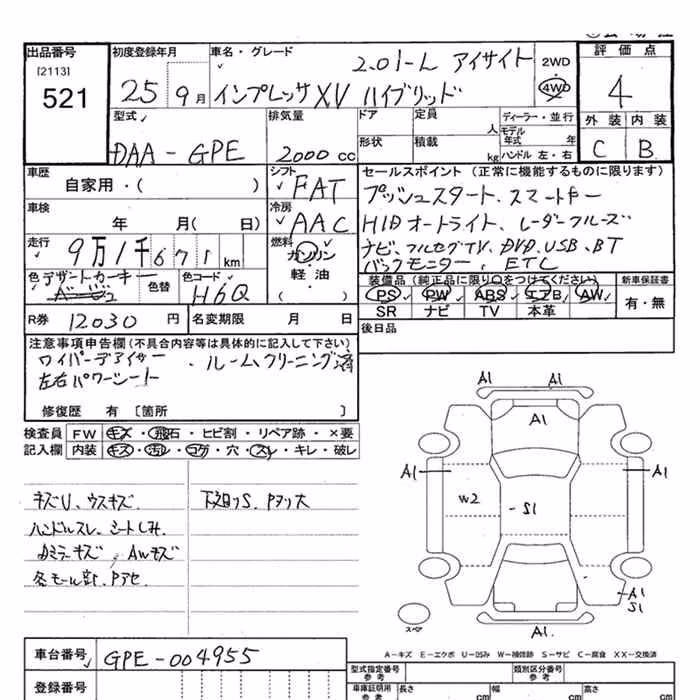 出品番号
[2113]
521
初度登録年月
25年9月
車名・グレード
2.0i-L アイサイト
インプレッサXV ハイブリッド
2WD
4WD
評価点
4
外装 内装
C B
型式
DAA-GPE
排気量
2000cc
ドア
定員
人
形状
積載
kg
ディーラー・並行
モデル年式 年
ハンドル 左・右
車歴
自家用・( )
シフト
FAT
セールスポイント(正常に機能するものに限ります)
プッシュスタート、スマートキー
HIDオートライト、レーダークルーズ
ナビ、フルセグTV、DVD、USB、BT
バックモニター、ETC
車検
年 月( 日)
冷房
AAC
走行
9万1千671km
燃料
ガソリン
軽油・
( )
色 デザートカーキー
色替
色コード
H6Q
装備品(純正品に限り○をつけてください)
PS PW ABS エアB AW
SR ナビ TV 本革
新車保証書
有・無
R券 12030円
名変期限 月 日
後日品
注意事項申告欄(不具合内容等は具体的に記入して下さい)
ワイパーデアイサー ・ルームクリーニング済
左右パワーシート
修復歴 有 〔箇所 〕
検査員 FW キズ・飛石・ヒビ割・リペア跡・×要
記入欄 内装 キズ・汚レ・コゲ・穴・スレ・キレ・破レ
キズU、ウスキズ
ハンドルスレ、シートしみ
ドミラーキズ、AWキズ
各モール部、Pアセ
下廻りS、Pタッチ
A1 A1
A1
A1 A1
W2 S1
A1
S1
A1
スペア
A-キズ E-エクボ U-凹み W-補修跡 S-サビ C-腐食 XX-交換済
車台番号 GPE-004955
登録番号
型式指定番号 参考
類別区分番号 参考
車庫証明用 参考 長さ cm 幅 cm 高さ cm